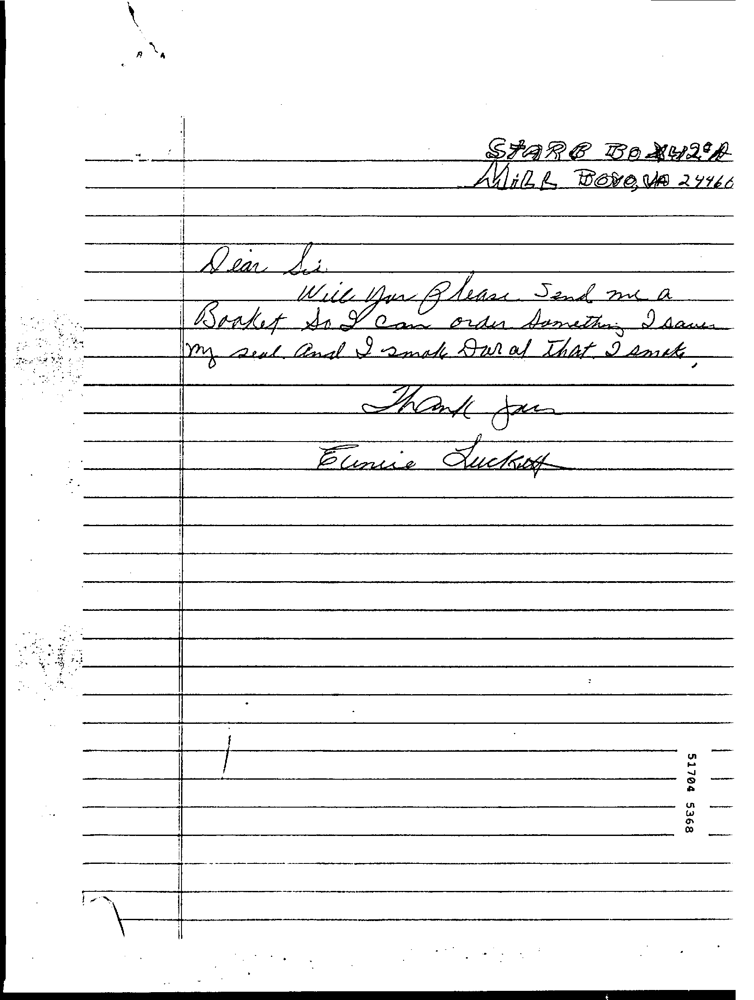 STAR B BOX 42 A
Mill Boro, VA 24466
Dear Sir
Will you Please Send me a
Booket So I can order Something I saven
my seal and I smok Doral that I smoke,
Thank you
Eunice
51704 5368